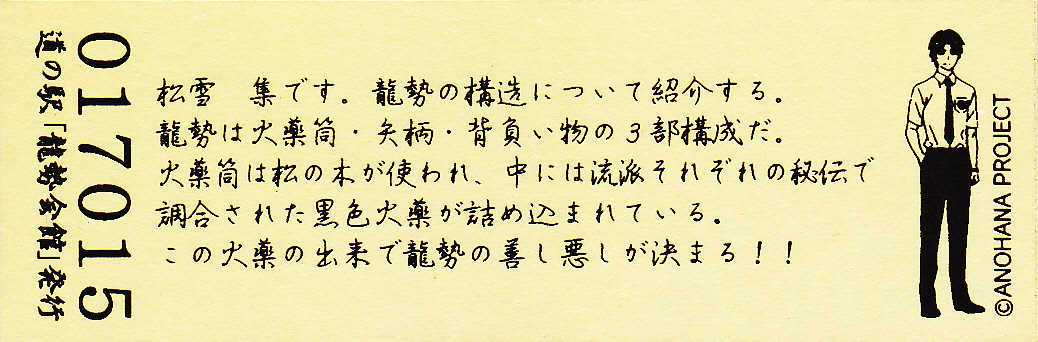 017015
道の駅「龍勢会館」発行
松雪　集です。龍勢の構造について紹介する。
龍勢は火薬筒・矢柄・背負い物の3部構成だ。
火薬筒は松の木が使われ、中には流派それぞれの秘伝で
調合された黒色火薬が詰め込まれている。
この火薬の出来で龍勢の善し悪しが決まる！！
©ANOHANA PROJECT